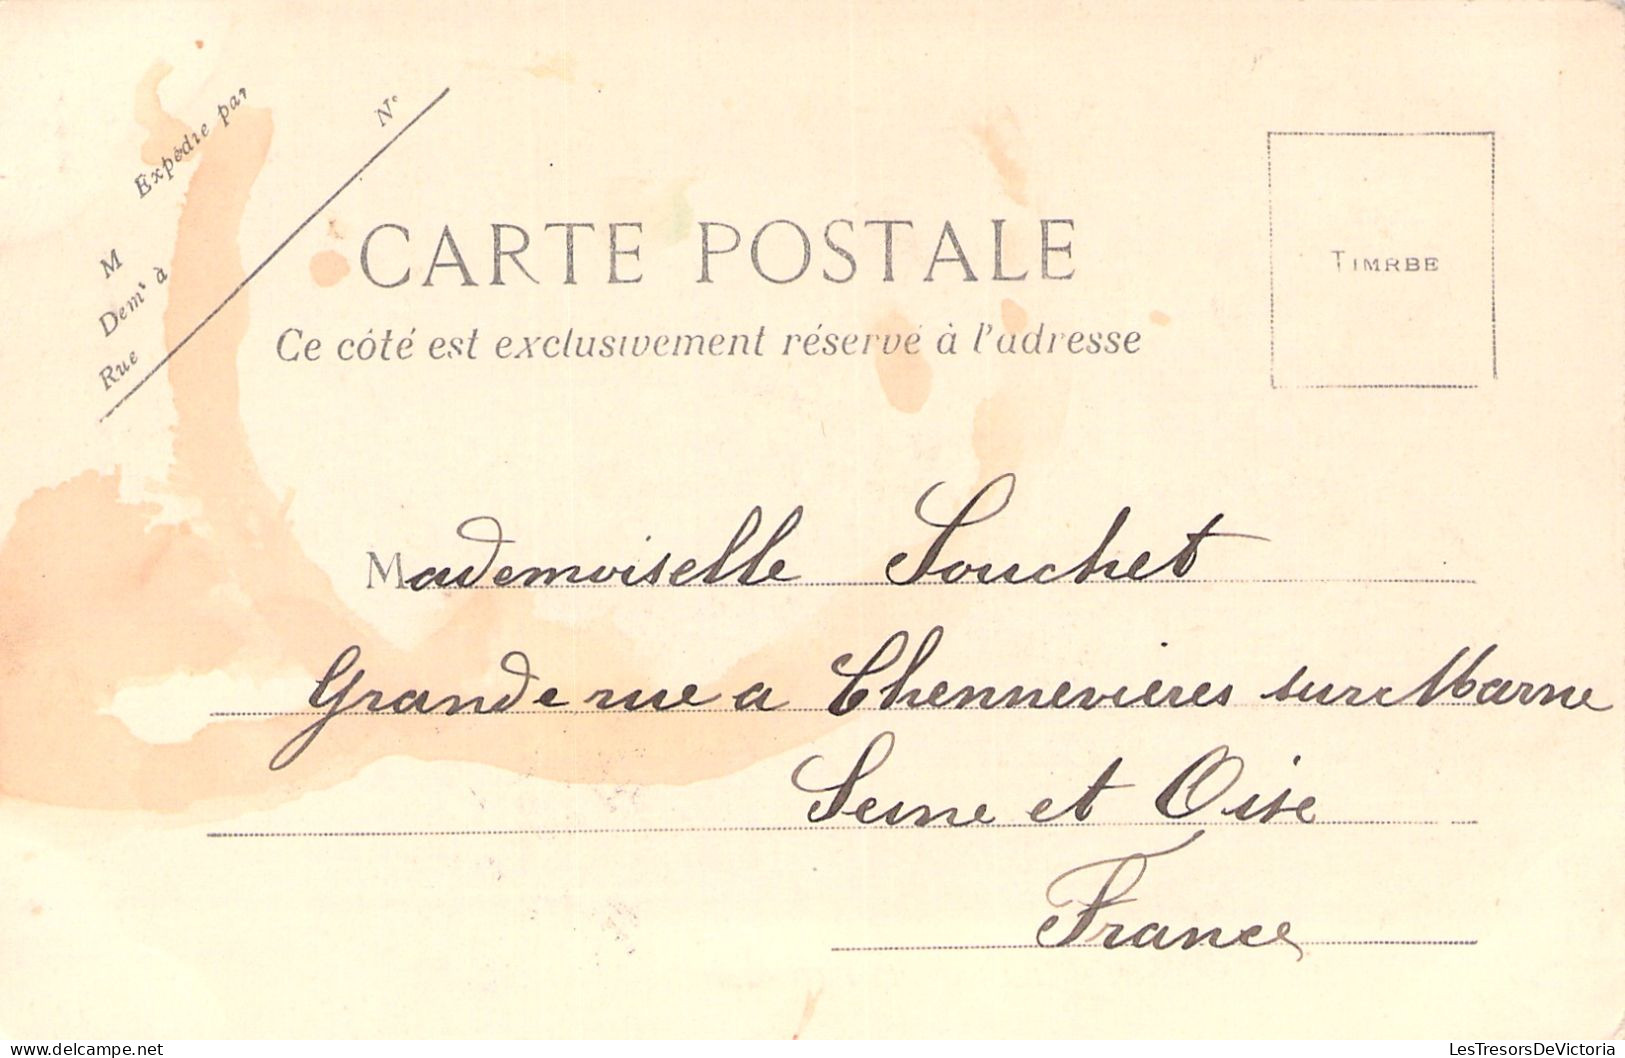 Expédié par
Nº
M
Demt à
Rue
CARTE POSTALE
Ce côté est exclusivement réservé à l'adresse
TIMRBE
Mademoiselle Souchet
Grande rue a Chennevieres sur Marne
Seine et Oise
France
LesTresorsDeVictoria
delcampe.net